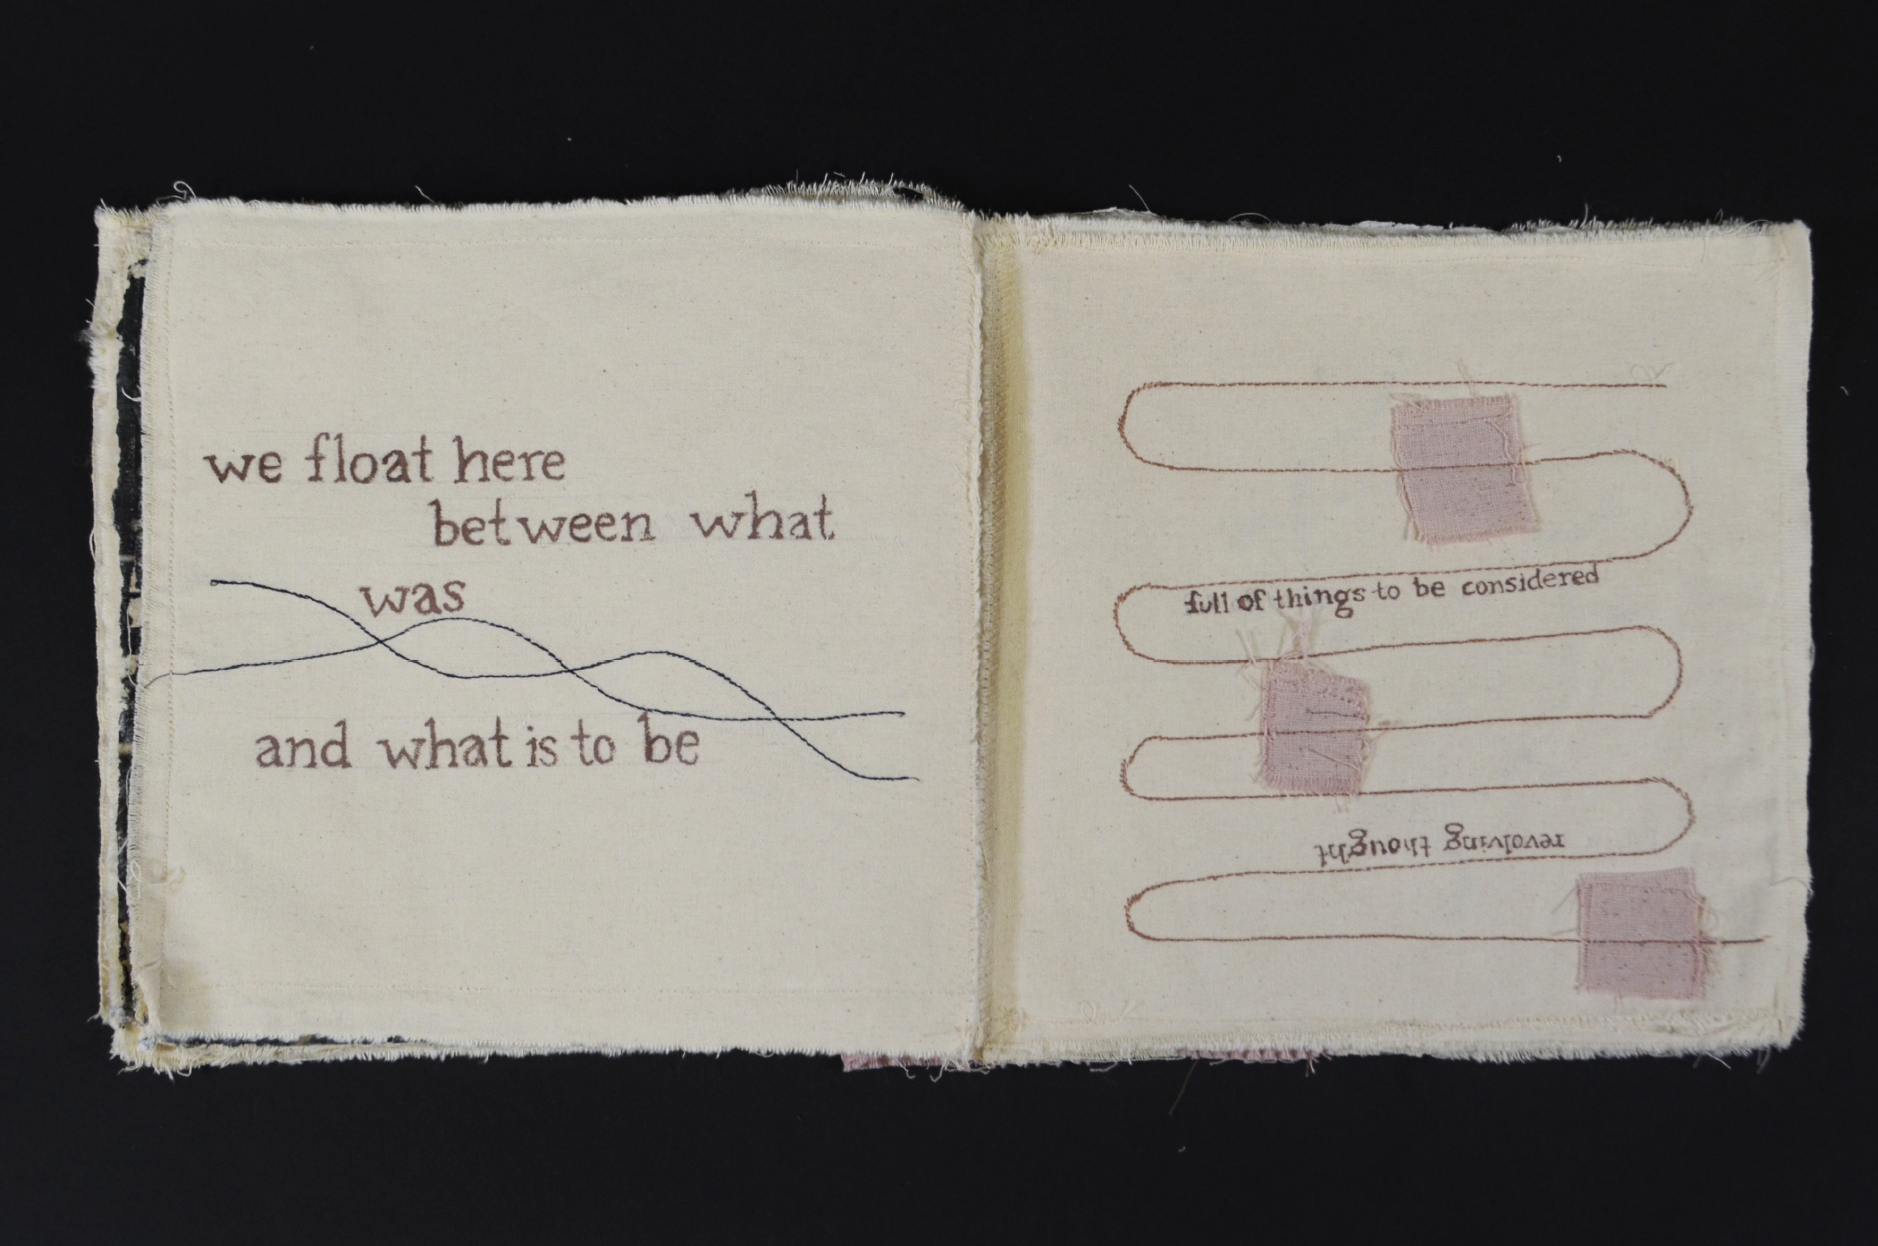 we float here
between what
was
and what is to be
full of things to be considered
revolving thought